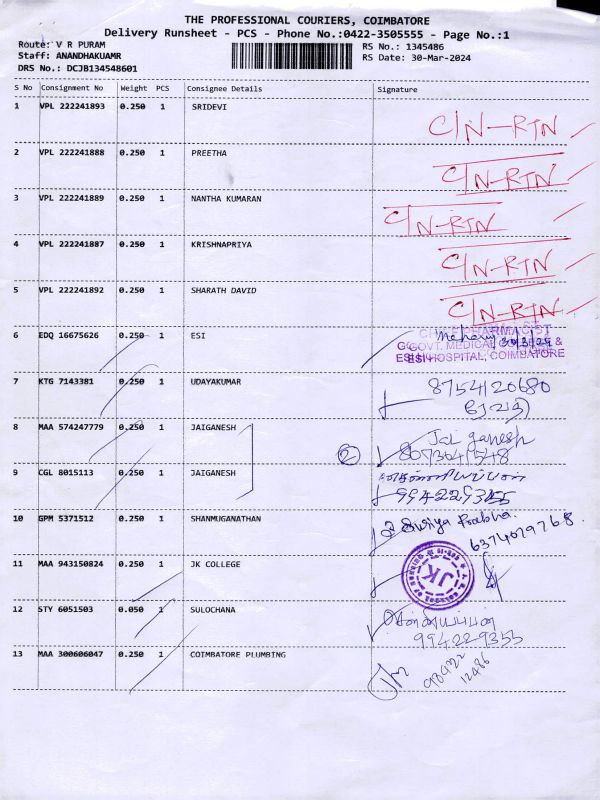 THE PROFESSIONAL COURIERS, COIMBATORE
Delivery Runsheet - PCS - Phone No.:0422-3505555 - Page No.:1
Route: V R PURAM
RS No.: 1345486
Staff: ANANDHAKUAMR
RS Date: 30-Mar-2024
DRS No.: DCJB134548601
S No Consignment No Weight PCS Consignee Details Signature
1 VPL 222241893 0.250 1 SRIDEVI C/N-RTN
2 VPL 222241888 0.250 1 PREETHA C/N-RTN
3 VPL 222241889 0.250 1 NANTHA KUMARAN C/N-RTN
4 VPL 222241887 0.250 1 KRISHNAPRIYA C/N-RTN
5 VPL 222241892 0.250 1 SHARATH DAVID C/N-RTN
CHIEF PHARMACIST
6 EDQ 16675626 0.250 1 ESI GOVT. MEDICAL COLLEGE &
ESI HOSPITAL, COIMBATORE
7 KTG 7143381 0.250 1 UDAYAKUMAR 8754120680
ரேவதி
8 MAA 574247779 0.250 1 JAIGANESH 2 Jai ganesh
8073641548
9 CGL 8015113 0.250 1 JAIGANESH
9942293455
10 GPM 5371512 0.250 1 SHANMUGANATHAN Suriya Prabha.
6374079768
11 MAA 943150824 0.250 1 JK COLLEGE JK
12 STY 6051503 0.050 1 SULOCHANA
994229355
13 MAA 300606047 0.250 1 COIMBATORE PLUMBING 98422
12486